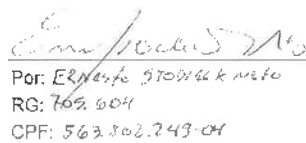 Por: Ernesto Stodieck Neto
RG: 705.604
CPF: 563.802.749-04